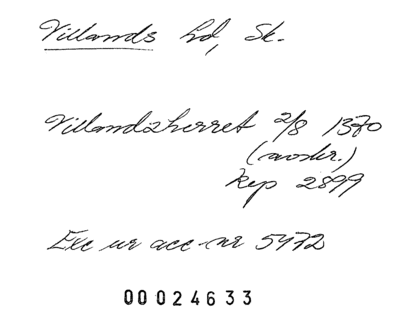 Villands hd, Sk.
Villandzherret 2/8 1370
(avskr.)
Rep 2899
Exc ur acc-nr 5472
00024633